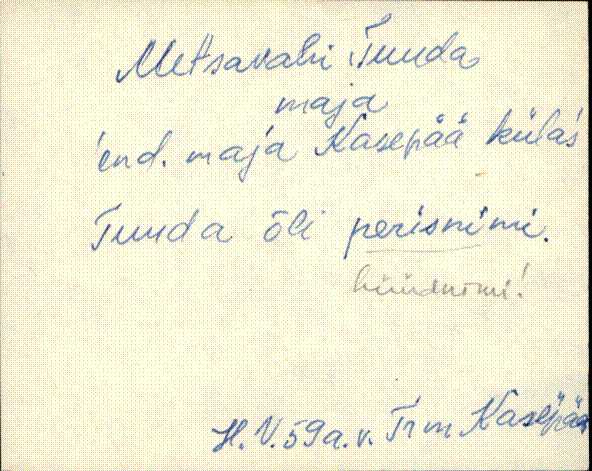 Metsavahi Tuuda
maja
end. maja Kasepää külas
Tuuda õli perisnimi.
hüüdnimi!
H. V. 59 a. v. Trm Kasepää